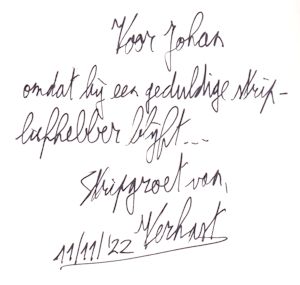 Voor Johan
omdat hij een geduldige strip-
liefhebber blijft...
Stripgroet van,
Verhast
11/11/'22